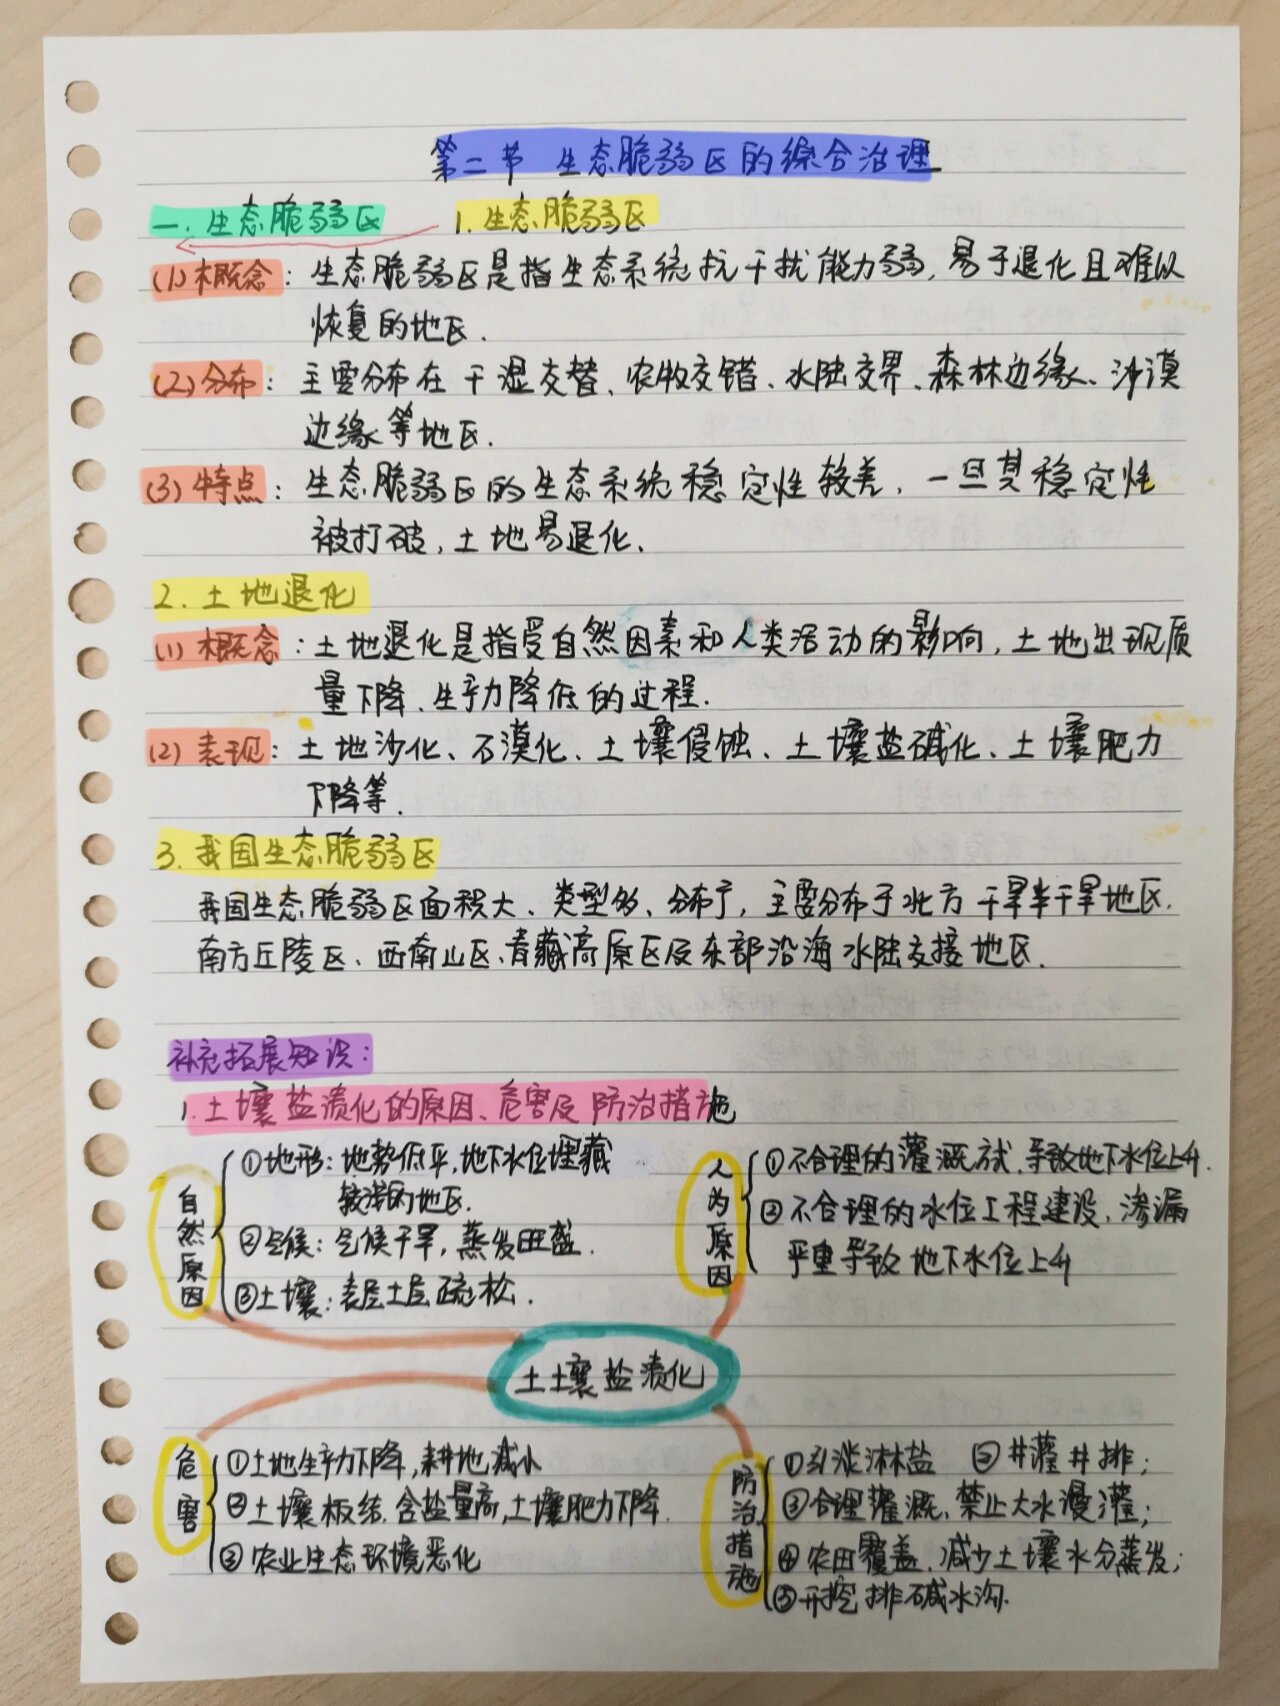 第二节 生态脆弱区的综合治理
一.生态脆弱区 1.生态脆弱区
(1)概念：生态脆弱区是指生态系统抗干扰能力弱,易于退化且难以
恢复的地区.
(2)分布：主要分布在干湿交替、农牧交错、水陆交界、森林边缘、沙漠
边缘等地区.
(3)特点：生态脆弱区的生态系统稳定性较差,一旦其稳定性
被打破,土地易退化、
2.土地退化
(1)概念：土地退化是指受自然因素和人类活动的影响,土地出现质
量下降、生产力降低的过程.
(2)表现：土地沙化、石漠化、土壤侵蚀、土壤盐碱化、土壤肥力
下降等.
3.我国生态脆弱区
我国生态脆弱区面积大、类型多、分布广,主要分布于北方干旱半干旱地区.
南方丘陵区、西南山区、青藏高原区及东部沿海水陆交接地区.
补充拓展知识：
1.土壤盐渍化的原因、危害及防治措施
自然原因
①地形：地势低平,地下水位埋藏
较浅的地区.
②气候：气候干旱,蒸发旺盛.
③土壤：表层土层疏松.
人为原因
①不合理的灌溉方式,导致地下水位上升.
②不合理的水位工程建设,渗漏
严重导致地下水位上升
土壤盐渍化
危害
①土地生产力下降,耕地减小
②土壤板结,含盐量高,土壤肥力下降.
③农业生态环境恶化
防治措施
①引淡淋盐 ②井灌井排；
③合理灌溉,禁止大水漫灌；
④农田覆盖,减少土壤水分蒸发；
⑤开挖排碱水沟.